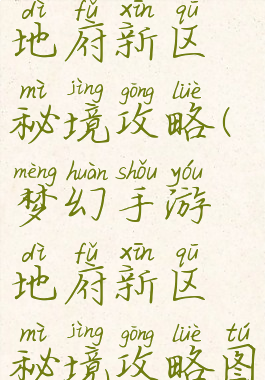 dì fǔ xīn qū
地府新区
mì jìng gōng lüè
秘境攻略(
mèng huàn shǒu yóu
梦幻手游
dì fǔ xīn qū
地府新区
mì jìng gōng lüè tú
秘境攻略图